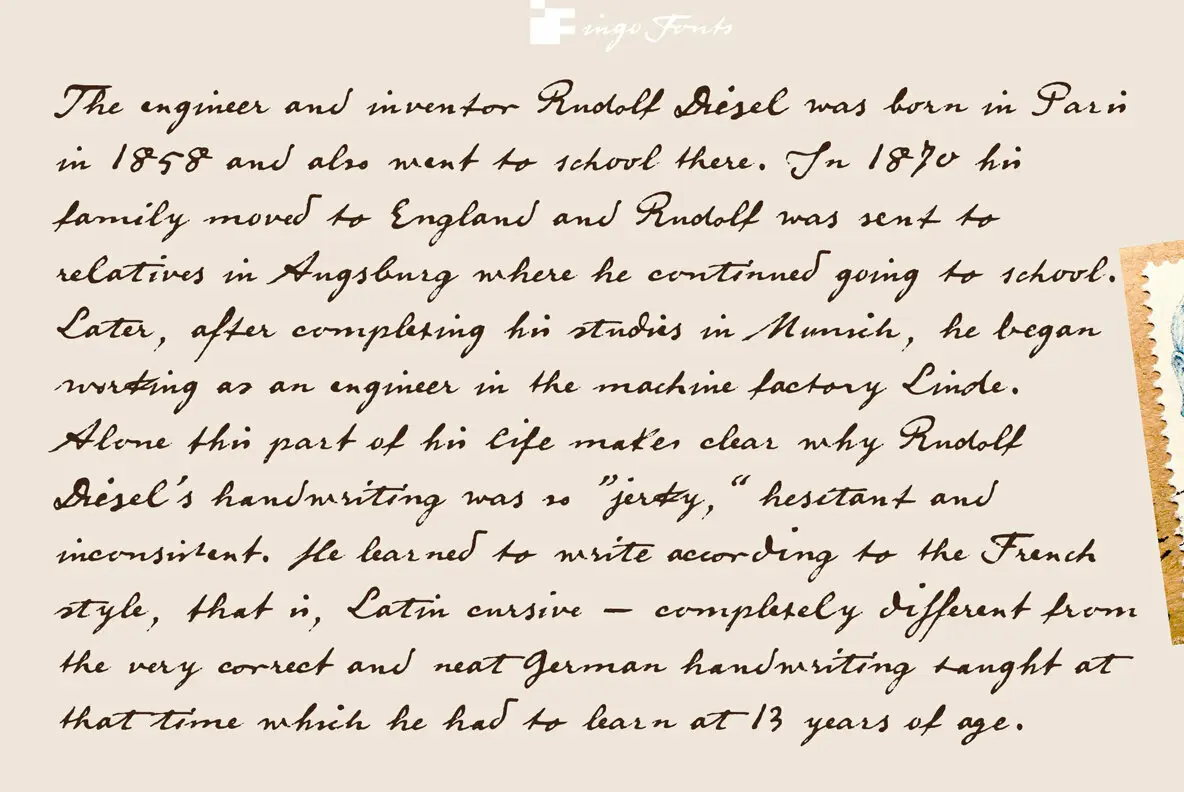 ingo Fonts
The engineer and inventor Rudolf Diesel was born in Paris
in 1858 and also went to school there. In 1870 his
family moved to England and Rudolf was sent to
relatives in Augsburg where he continued going to school.
Later, after completing his studies in Munich, he began
working as an engineer in the machine factory Linde.
Alone this part of his life makes clear why Rudolf
Diesel's handwriting was so ”jerky,“ hesitant and
inconsistent. He learned to write according to the French
style, that is, Latin cursive – completely different from
the very correct and neat German handwriting taught at
that time which he had to learn at 13 years of age.